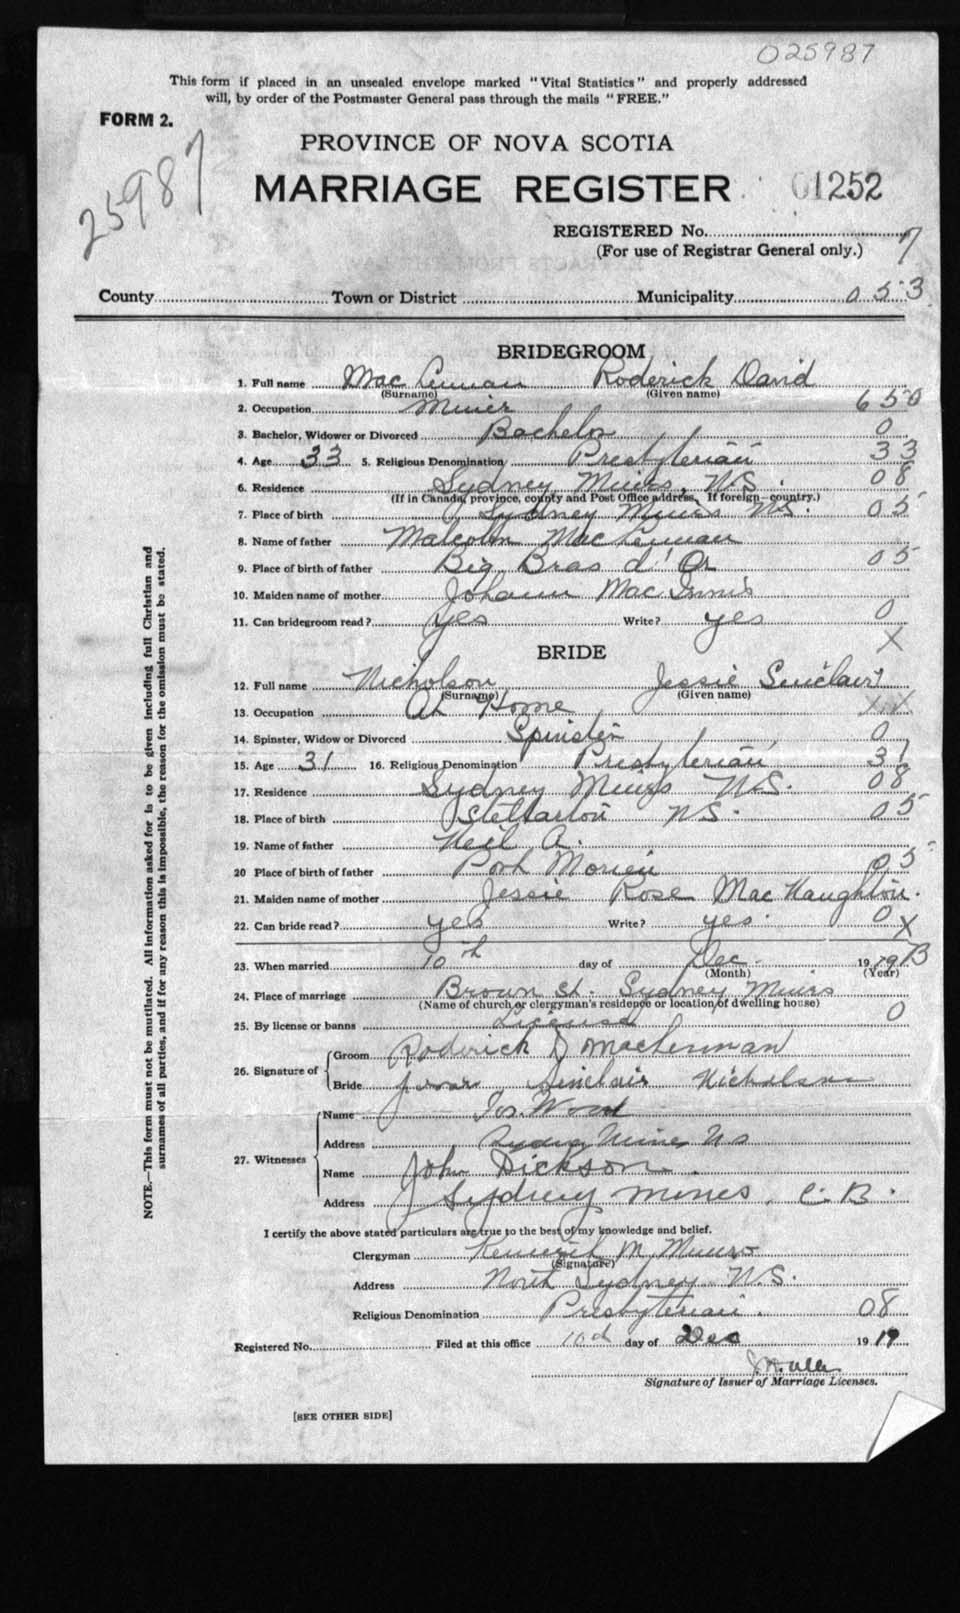 025987
This form if placed in an unsealed envelope marked "Vital Statistics" and properly addressed
will, by order of the Postmaster General pass through the mails "FREE."
FORM 2.
25987
PROVINCE OF NOVA SCOTIA
MARRIAGE REGISTER 01252
REGISTERED No. 7
(For use of Registrar General only.)
County Town or District Municipality 053
BRIDEGROOM
1. Full name Mac Lennan Roderick David
(Surname) (Given name)
2. Occupation Miner 650
3. Bachelor, Widower or Divorced Bachelor 0
4. Age 33 5. Religious Denomination Presbyterian 33
6. Residence Sydney Mines, N.S. 08
(If in Canada, province, county and Post Office address. If foreign—country.)
7. Place of birth Sydney Mines N.S. 05
8. Name of father Malcolm Mac Lennan
9. Place of birth of father Big Bras d'Or 05
10. Maiden name of mother Johann Mac Innis
11. Can bridegroom read? Yes Write? yes 0
X
BRIDE
12. Full name Nicholson Jessie Sinclair
(Surname) (Given name)
13. Occupation At Home XXX
14. Spinster, Widow or Divorced Spinster 0
15. Age 31 16. Religious Denomination Presbyterian 31
17. Residence Sydney Mines N.S. 08
18. Place of birth Stellarton N.S. 05
19. Name of father Neil A.
20 Place of birth of father Port Morien 05
21. Maiden name of mother Jessie Rose Mac Naughton.
22. Can bride read? yes Write? yes. 0
X
23. When married 10th day of Dec. 1919 B
(Month) (Year)
24. Place of marriage Brown St. Sydney Mines
(Name of church or clergyman's residence or location of dwelling house)
25. By license or banns License 0
26. Signature of Groom Roderick D MacLennan
Bride Sinclair Nicholson
27. Witnesses Name Jos. Wood
Address Sydney Mines N S
Name John Dickson
Address Sydney Mines, C. B.
I certify the above stated particulars are true to the best of my knowledge and belief.
Clergyman Kenneth M. Munro
(Signature)
Address North Sydney N.S.
Religious Denomination Presbyterian. 08
Registered No. Filed at this office 10d day of Dec 1919
Signature of Issuer of Marriage Licenses.
[SEE OTHER SIDE]
NOTE.—This form must not be mutilated. All information asked for is to be given including full Christian and
surnames of all parties, and if for any reason this is impossible, the reason for the omission must be stated.